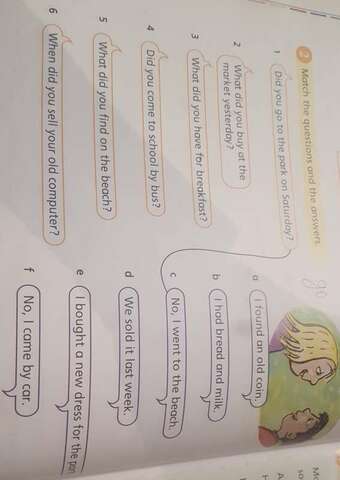 2 Match the questions and the answers.
1 Did you go to the park on Saturday?
2 What did you buy at the
market yesterday?
3 What did you have for breakfast?
4 Did you come to school by bus?
5 What did you find on the beach?
6 When did you sell your old computer?
a I found an old coin.
b I had bread and milk.
c No, I went to the beach.
d We sold it last week.
e I bought a new dress for the
f No, I came by car.